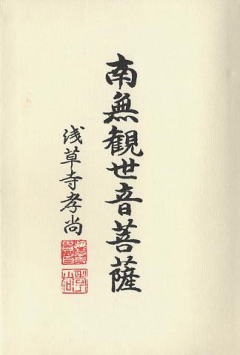 南無観世音菩薩
浅草寺孝尚